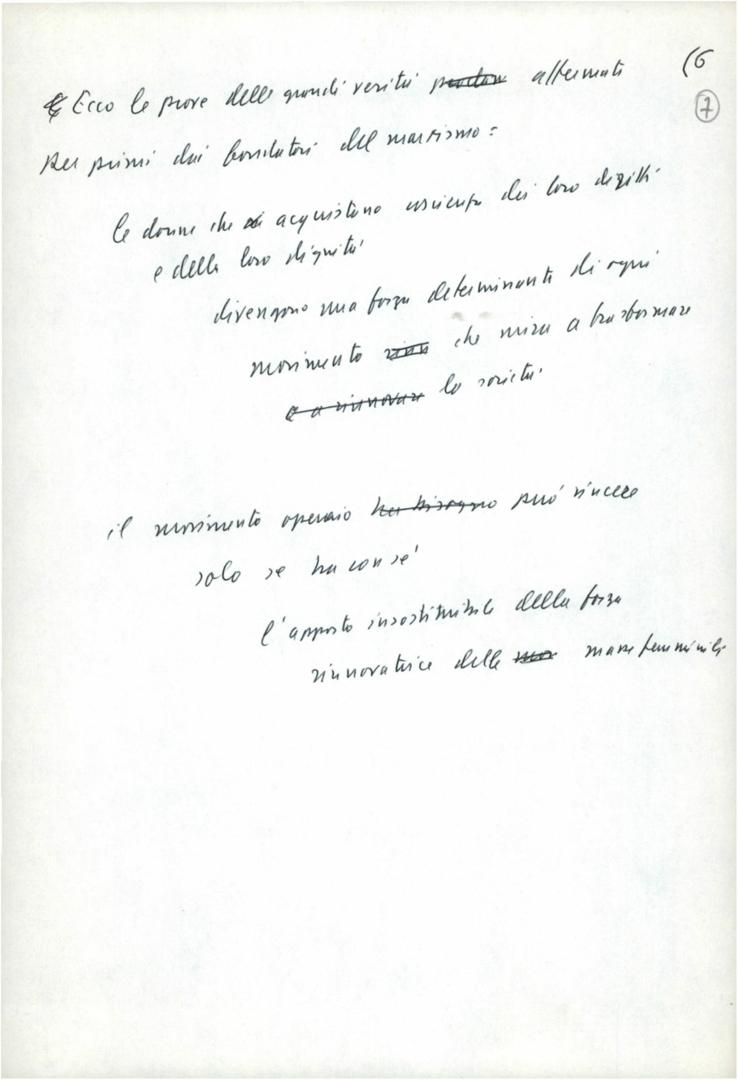 (6
7
Ecco le prove delle grandi verità affermate
per primi dai fondatori del marxismo:
le donne che acquistano coscienza dei loro diritti
e della loro dignità
divengono una forza determinante di ogni
movimento che mira a trasformare
e a rinnovare la società
il movimento operaio ha bisogno può vincere
solo se ha con sé
l'apporto insostituibile della forza
rinnovatrice delle masse femminili